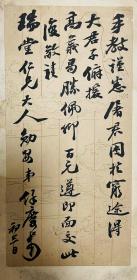 手教謹悉屠君困於窮途得
大君子俯援
高義曷勝佩仰百元遵即面交此
復敬請
瑞堂仁兄大人勛安弟
初三日